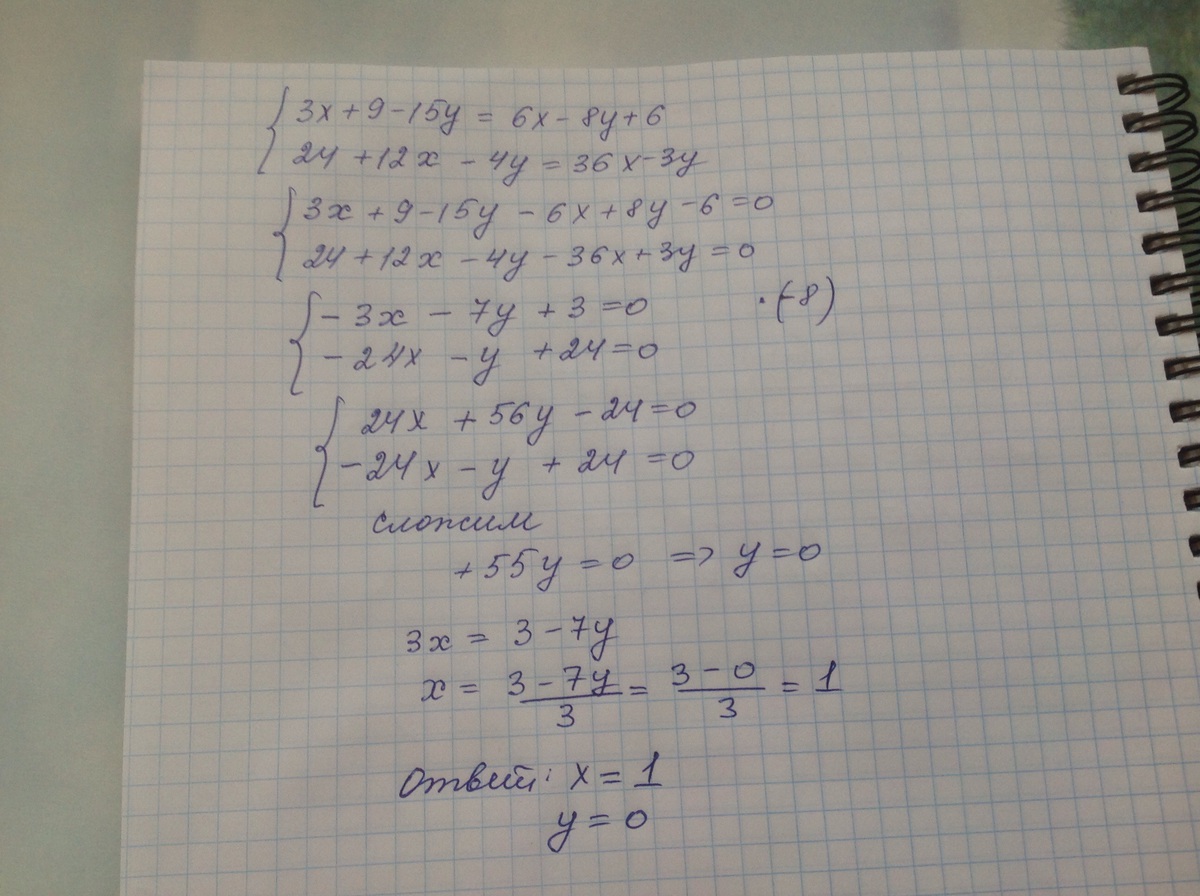 3x + 9 - 15y = 6x - 8y + 6
24 + 12x - 4y = 36x - 3y
3x + 9 - 15y - 6x + 8y - 6 = 0
24 + 12x - 4y - 36x + 3y = 0
- 3x - 7y + 3 = 0 · (-8)
- 24x - y + 24 = 0
24x + 56y - 24 = 0
- 24x - y + 24 = 0
сложим
+ 55y = 0 => y = 0
3x = 3 - 7y
x = (3 - 7y)/3 = (3 - 0)/3 = 1
Ответ: x = 1
y = 0